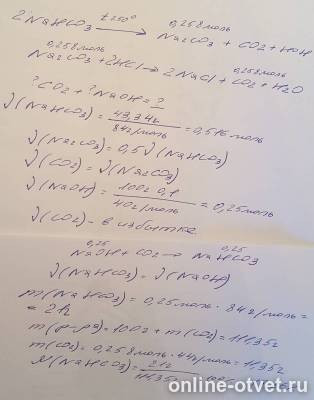 2NaHCO₃ t 250° → 0,258моль Na₂CO₃ + CO₂ + HOH
0,258моль Na₂CO₃ + 2HCl → 2NaCl + 0,258моль CO₂ + H₂O
? CO₂ + ? NaOH = ?
ν(NaHCO₃) = 43,34г / 84г/моль = 0,516моль
ν(Na₂CO₃) = 0,5ν(NaHCO₃)
ν(CO₂) = ν(Na₂CO₃)
ν(NaOH) = 100г·0,1 / 40г/моль = 0,25моль
ν(CO₂) - в избытке
0,25 NaOH + CO₂ → 0,25 NaHCO₃
ν(NaHCO₃) = ν(NaOH)
m(NaHCO₃) = 0,25моль · 84г/моль =
= 21г
m(р-ра) = 100г + m(CO₂) = 111,35г
m(CO₂) = 0,258моль · 44г/моль = 11,35г
(NaHCO₃) = 21г / 111,35г
online-otvet.ru